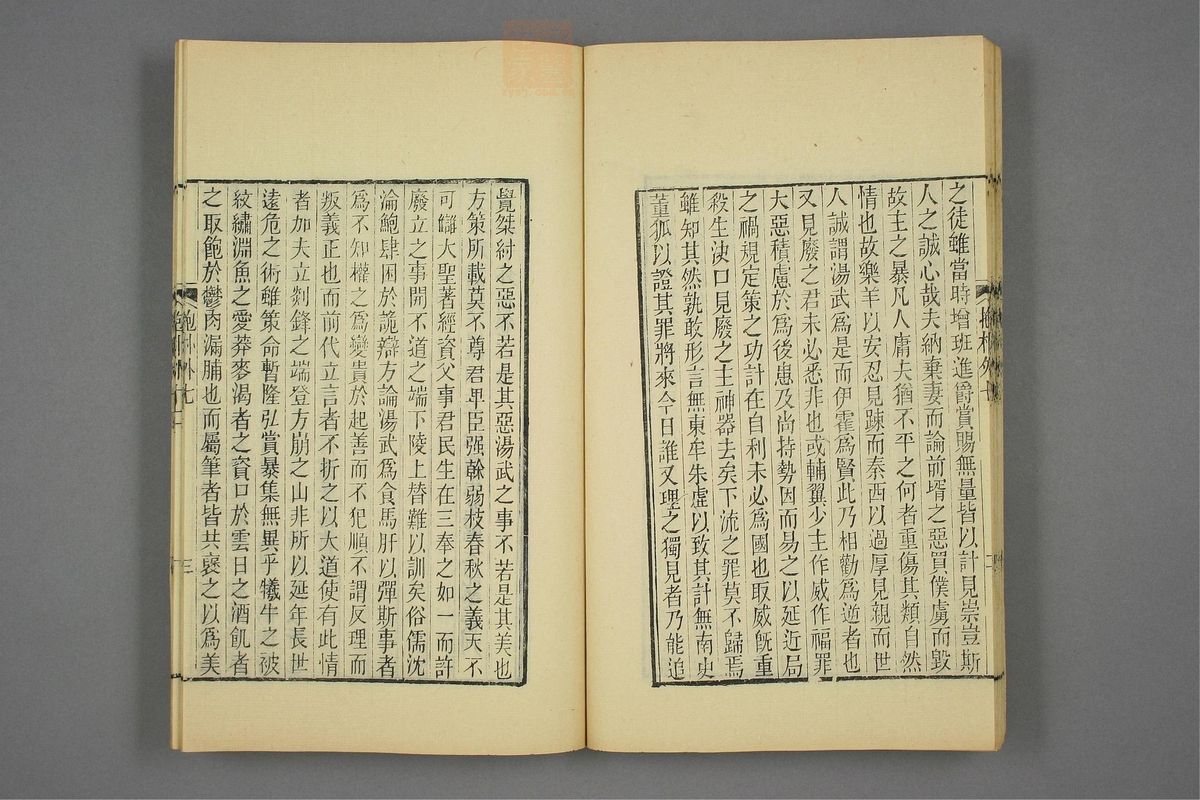 之徒雖當時增班進爵賞賜無量皆以計見崇豈斯
人之誠心哉夫納棄妻而論前壻之惡買僕虜而毀
故主之暴凡人庸夫猶不平之何者重傷其類自然
情也故樂羊以安忍見踈而秦西以過厚見親而世
人誠謂湯武爲是而伊霍爲賢此乃相勸爲逆者也
又見廢之君未必悉非也或輔翼少主作威作福罪
大惡積慮於爲後患及尚持勢因而易之以延近局
之禍規定策之功計在自利未必爲國也取威旣重
殺生決口見廢之主神器去矣下流之罪莫不歸焉
雖知其然孰敢形言無東牟朱虛以致其計無南史
董狐以證其罪將來今日誰又理之獨見者乃能追
覺桀紂之惡不若是其惡湯武之事不若是其美也
方策所載莫不尊君卑臣强榦弱枝春秋之義天不
可讎大聖著經資父事君民生在三奉之如一而許
廢立之事開不道之端下陵上替難以訓矣俗儒沈
淪鮑肆困於詭辯方論湯武爲食馬肝以彈斯事者
爲不知權之爲變貴於起善而不犯順不謂反理而
叛義正也而前代立言者不折之以大道使有此情
者加夫立剡鋒之端登方崩之山非所以延年長世
遠危之術雖策命暫隆弘賞暴集無異乎犧牛之被
紋繡淵魚之愛莽麥渴者之資口於雲日之酒飢者
之取飽於鬱肉漏脯也而屬筆者皆共襃之以爲美
抱朴外七
三